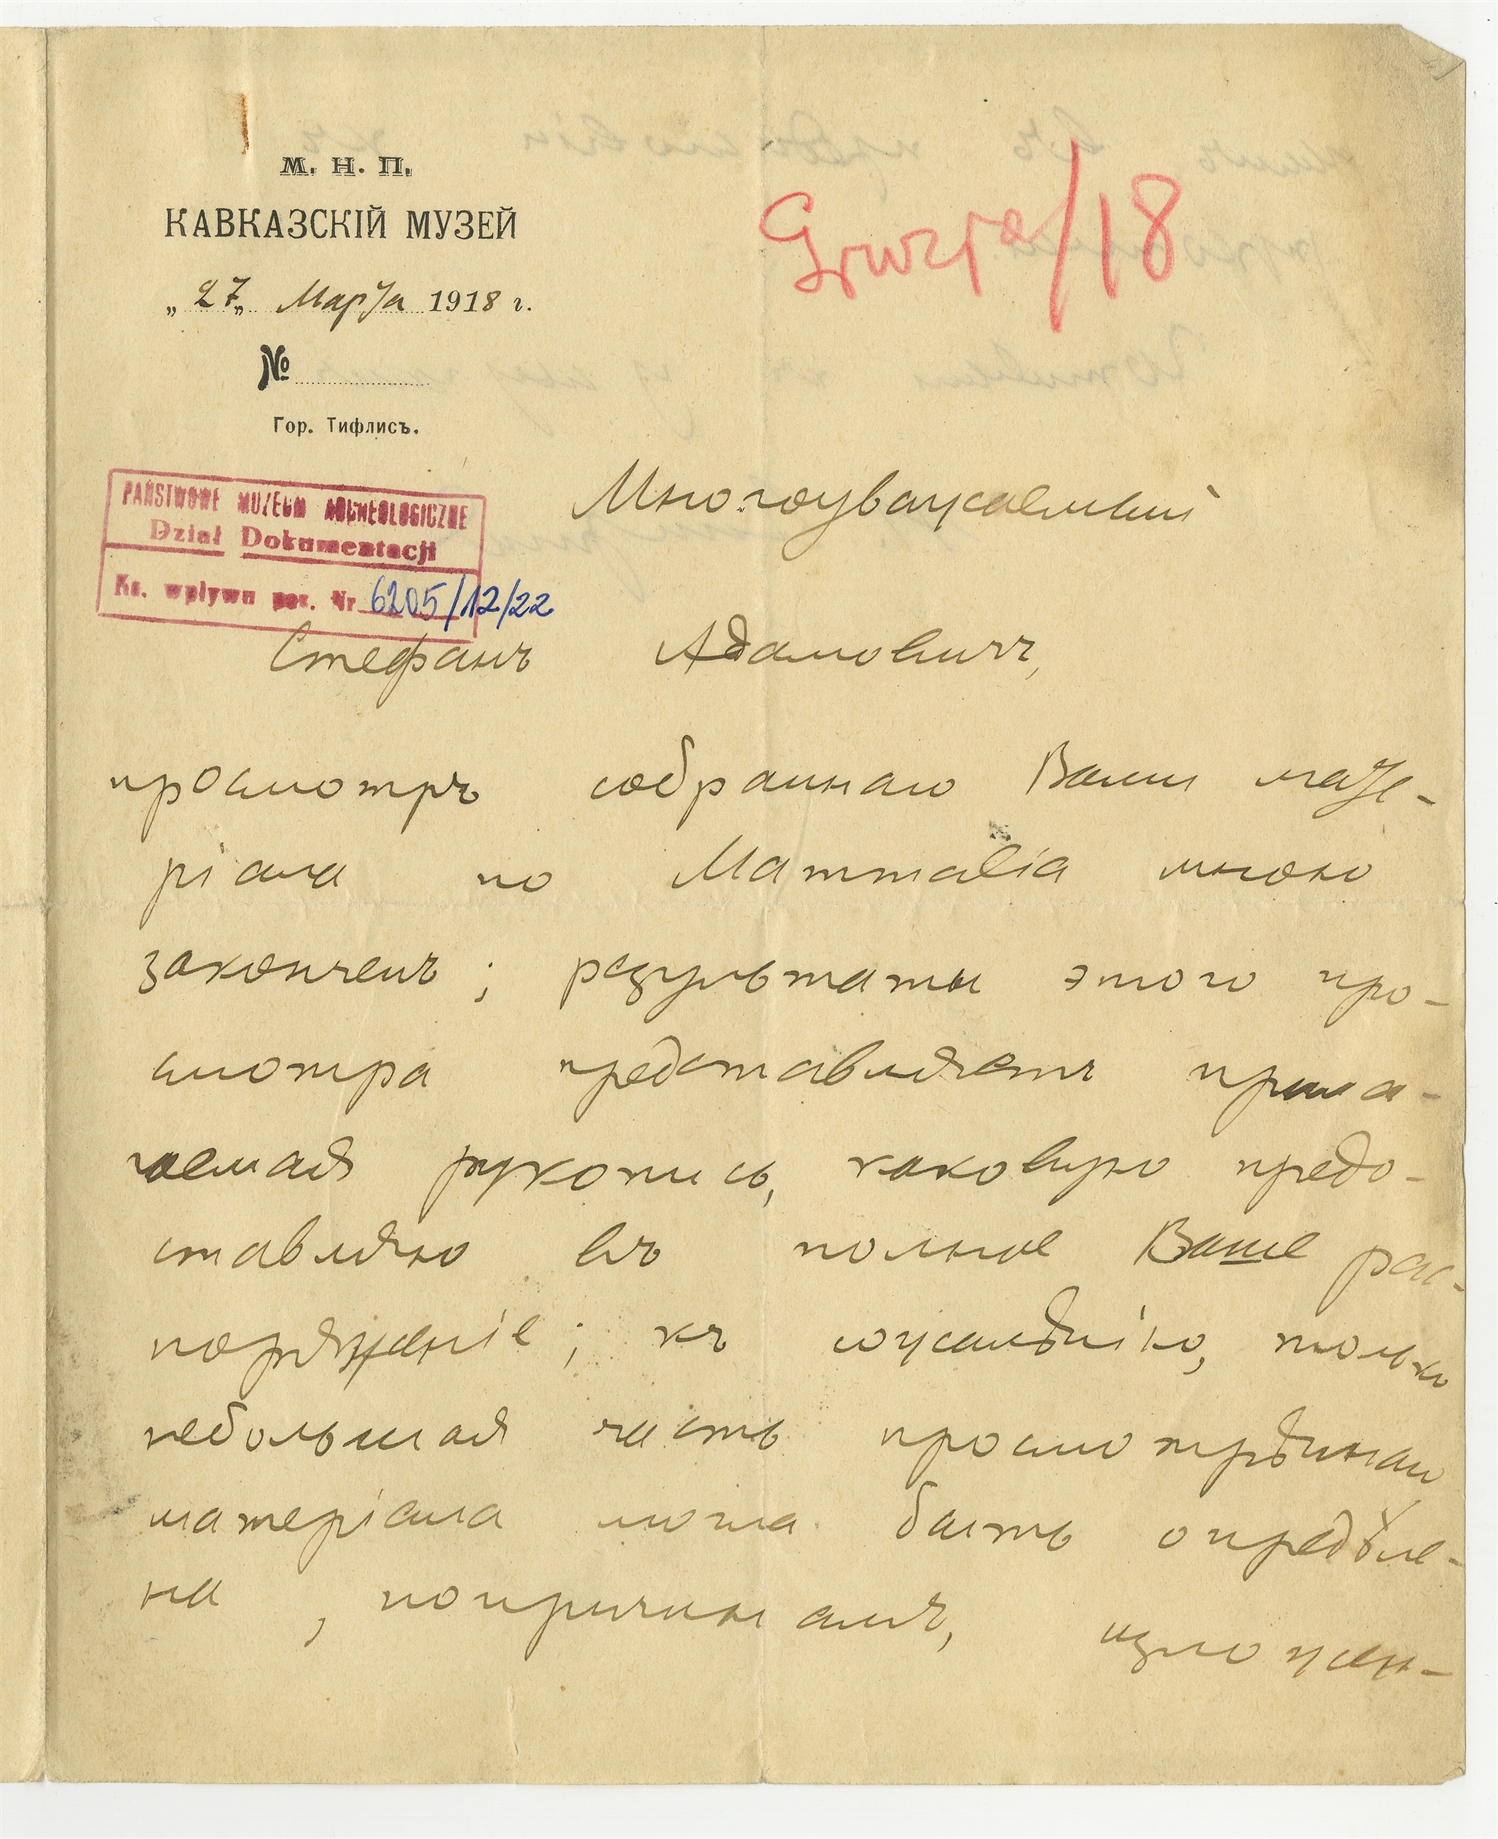 М. Н. П.
КАВКАЗСКІЙ МУЗЕЙ
„27„ Марта 1918 г.
№
Гор. Тифлисъ.
Gruzja/18
PAŃSTWOWE MUZEUM ARCHEOLOGICZNE
Dział Dokumentacji
Ks. wpływu poz. Nr 6205/12/22
Многоуважаемый
Стефанъ Адамовичъ,
просмотръ собраннаго Вами мате-
ріала по Mammalia мною
законченъ; результаты этого про-
смотра представляетъ прила-
гаемая рукопись, каковую предо-
ставляю въ полное Ваше рас-
поряженіе; къ сожалѣнію, только
небольшая часть просмотрѣннаго
матеріала могла быть опредѣле-
на, по причинамъ, изложен-